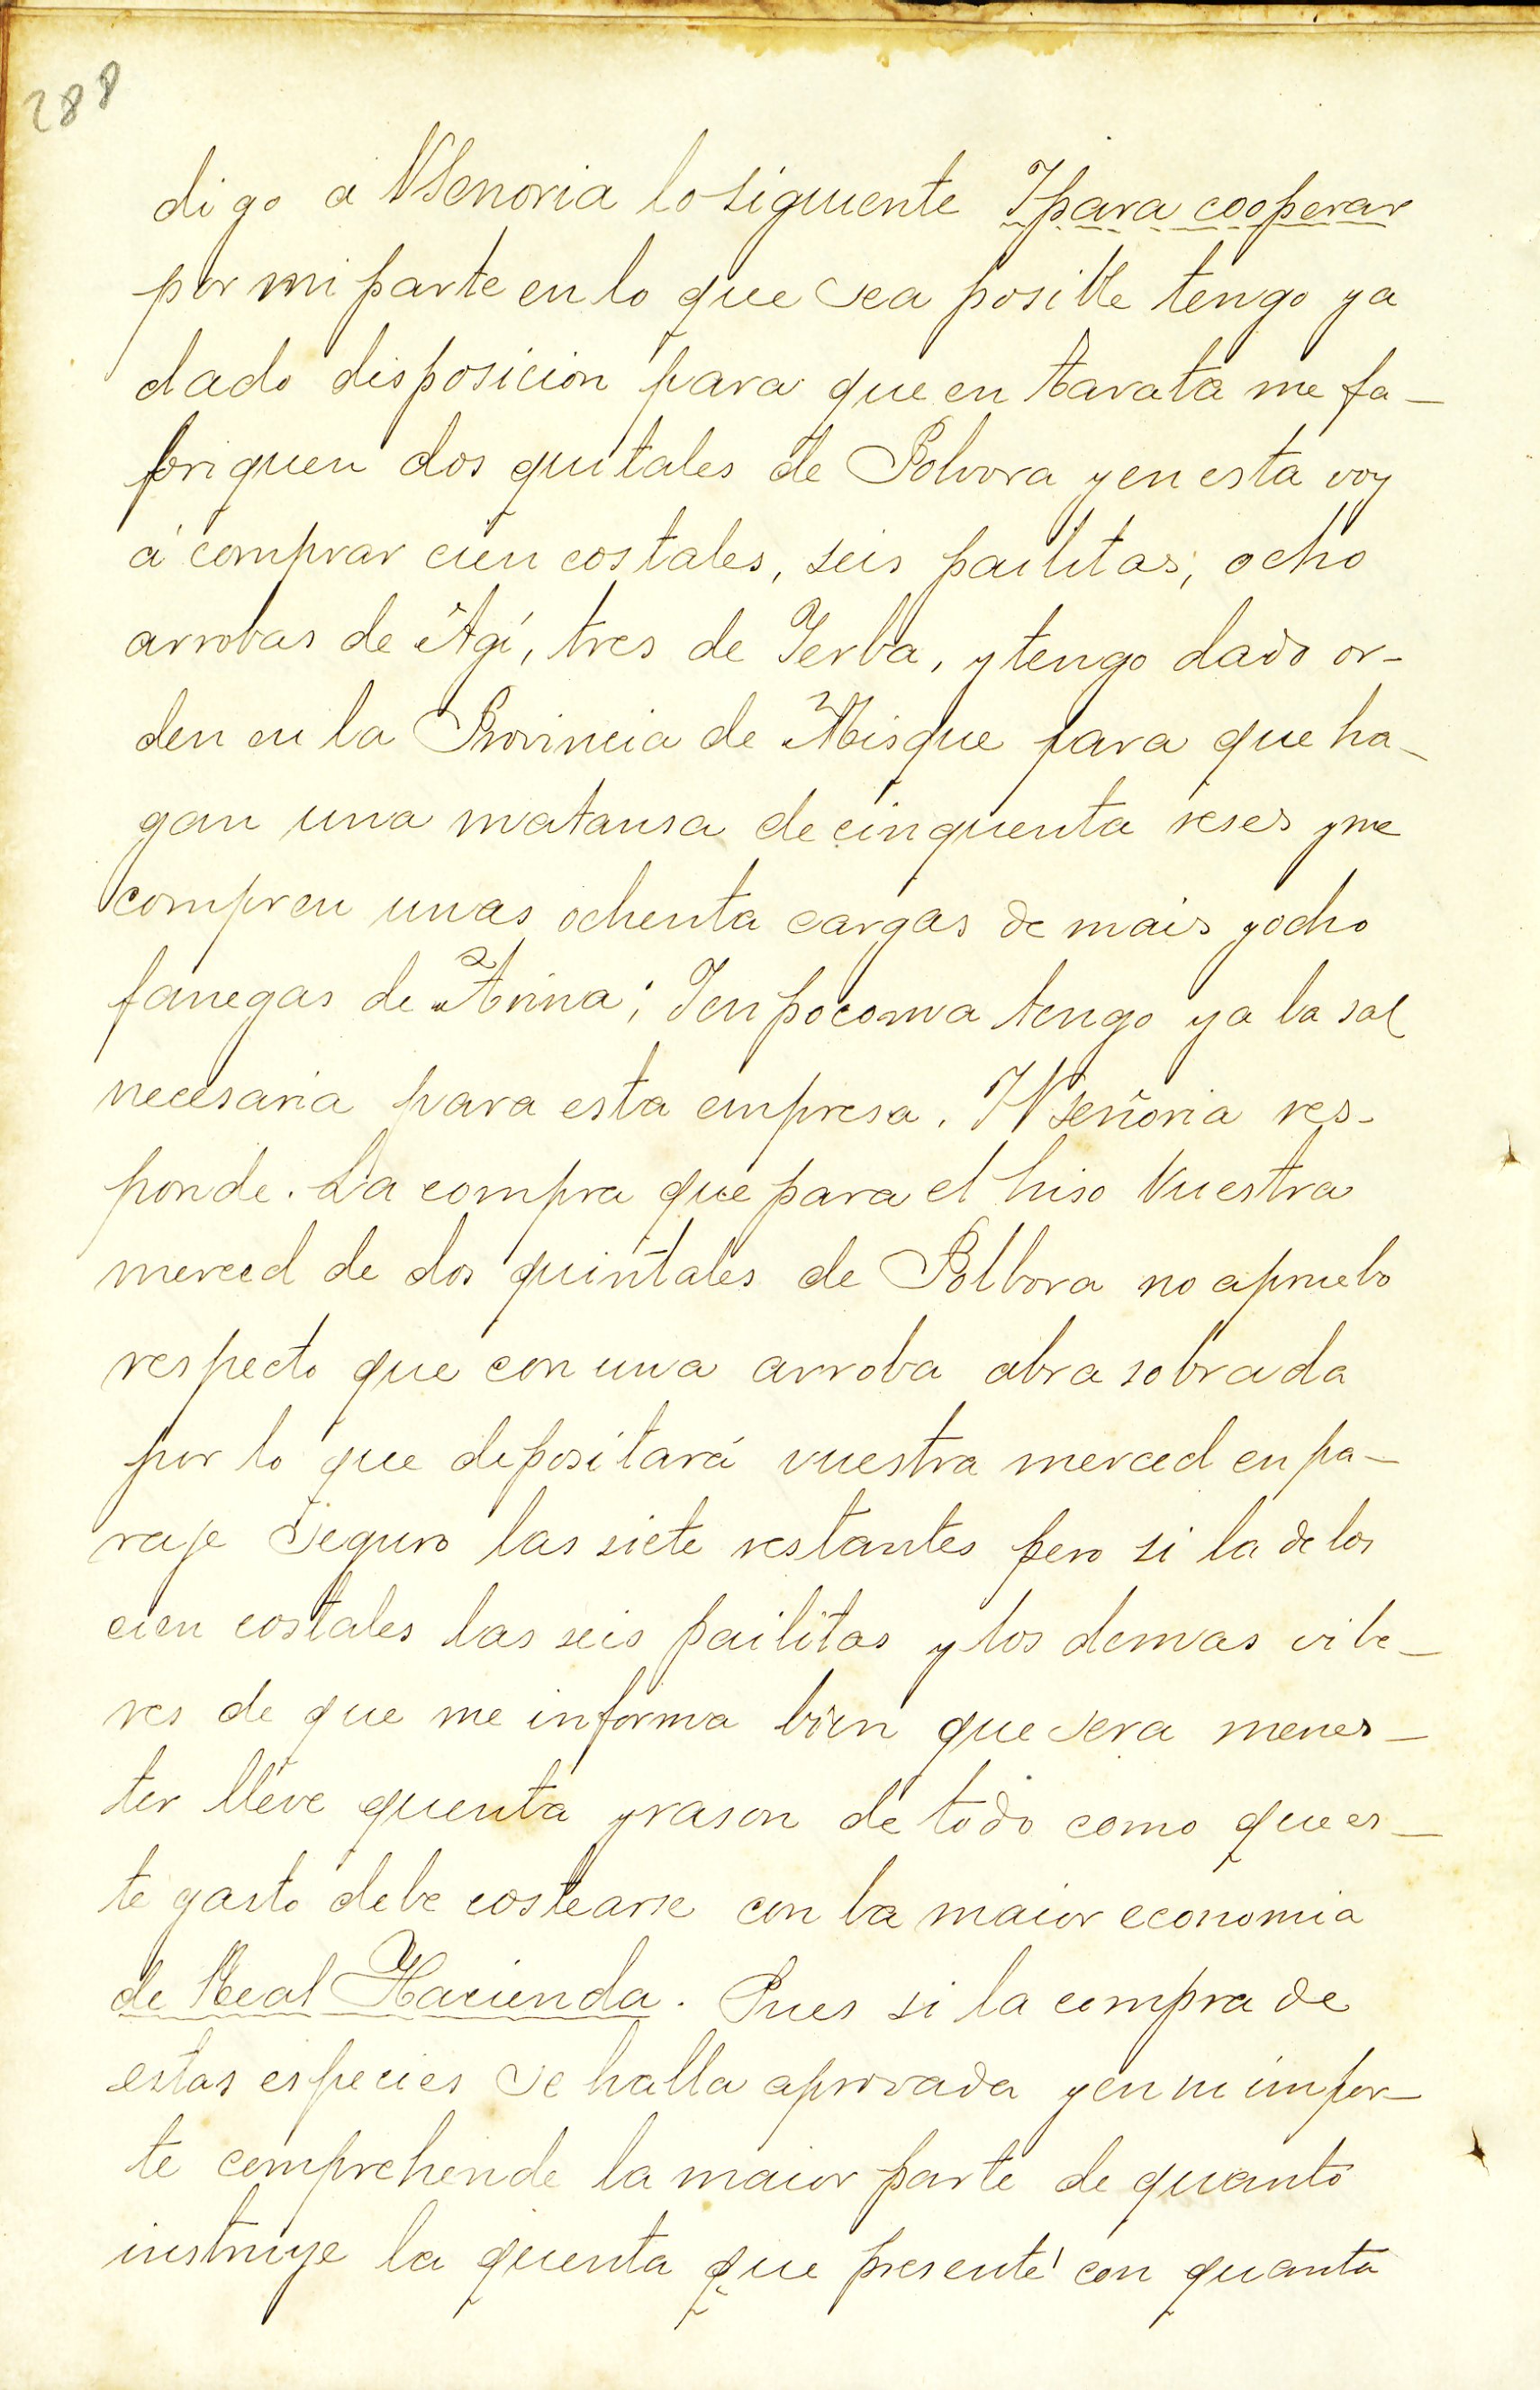 288
digo a VSenoria lo siguiente Ypara cooperar
por mi parte en lo que sea posible tengo ya
dado disposicion para que en tarata me fa-
briquen dos quitales de Polvora y en esta voy
á comprar cien costales, seis pailitas, ocho
arrobas de Agí, tres de Yerba, y tengo dado or-
den en la Provincia de Misque para que ha-
gan una matansa de cinquenta reses y me
compren unas ochenta cargas de mais y ocho
fanegas de Arina; Yen pocoma tengo ya la sal
necesaria para esta empresa. YVSeñoria res-
ponde. La compra que para el hiso Vuestra
merced de dos quintales de Polbora no apruebo
respecto que con una arroba abra sobrada
por lo que depositará vuestra merced en pa-
raje seguro las siete restantes pero si la de los
cien costales las seis pailitas y los demas vibe-
res de que me informa bien que sera menes-
ter lleve quenta y rason de todo como que es-
te gasto debe costearse con la maior economia
de Real Hacienda. Pues si la compra de
estas especies se halla aprovada y en su impor-
te comprehende la maior parte de quanto
instruye la quenta que presenté con quanta